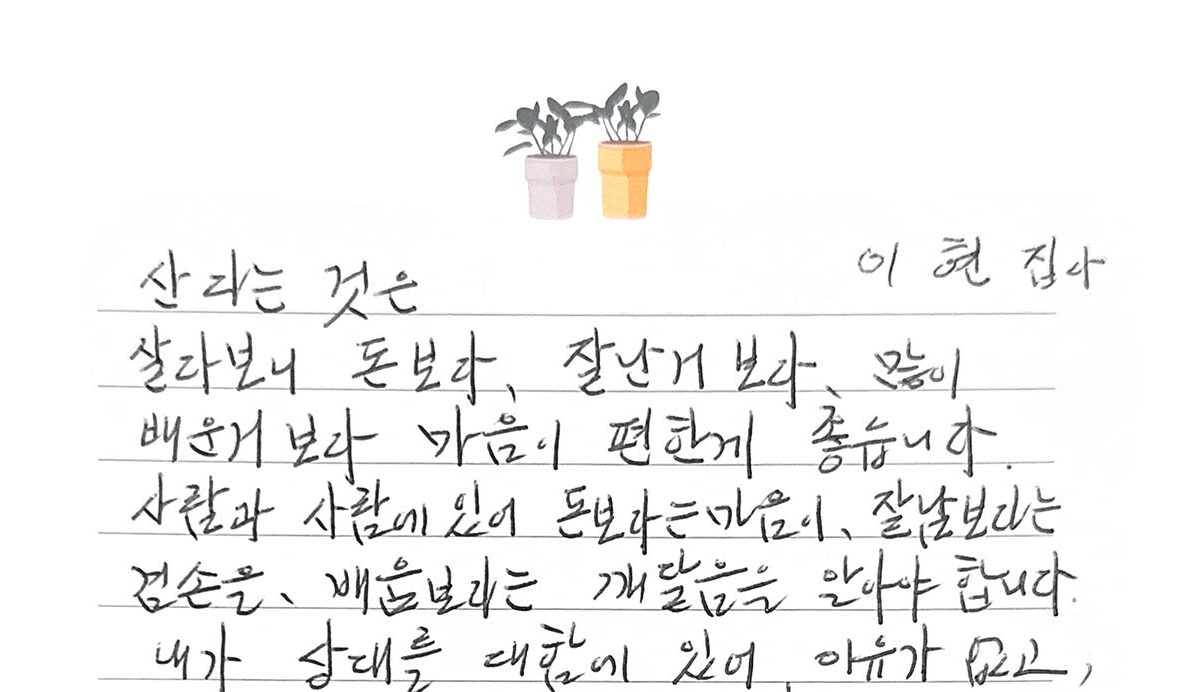 산다는 것은
이 현 집사
살다보니 돈보다, 잘난거 보다, 많이
배운거 보다 마음이 편한게 좋습니다.
사람과 사람에 있어 돈보라는 마음이, 잘남보다는
겸손을, 배움보라는 깨달음을 알아야 합니다.
내가 상대를 대함에 있어, 이유가 없고,